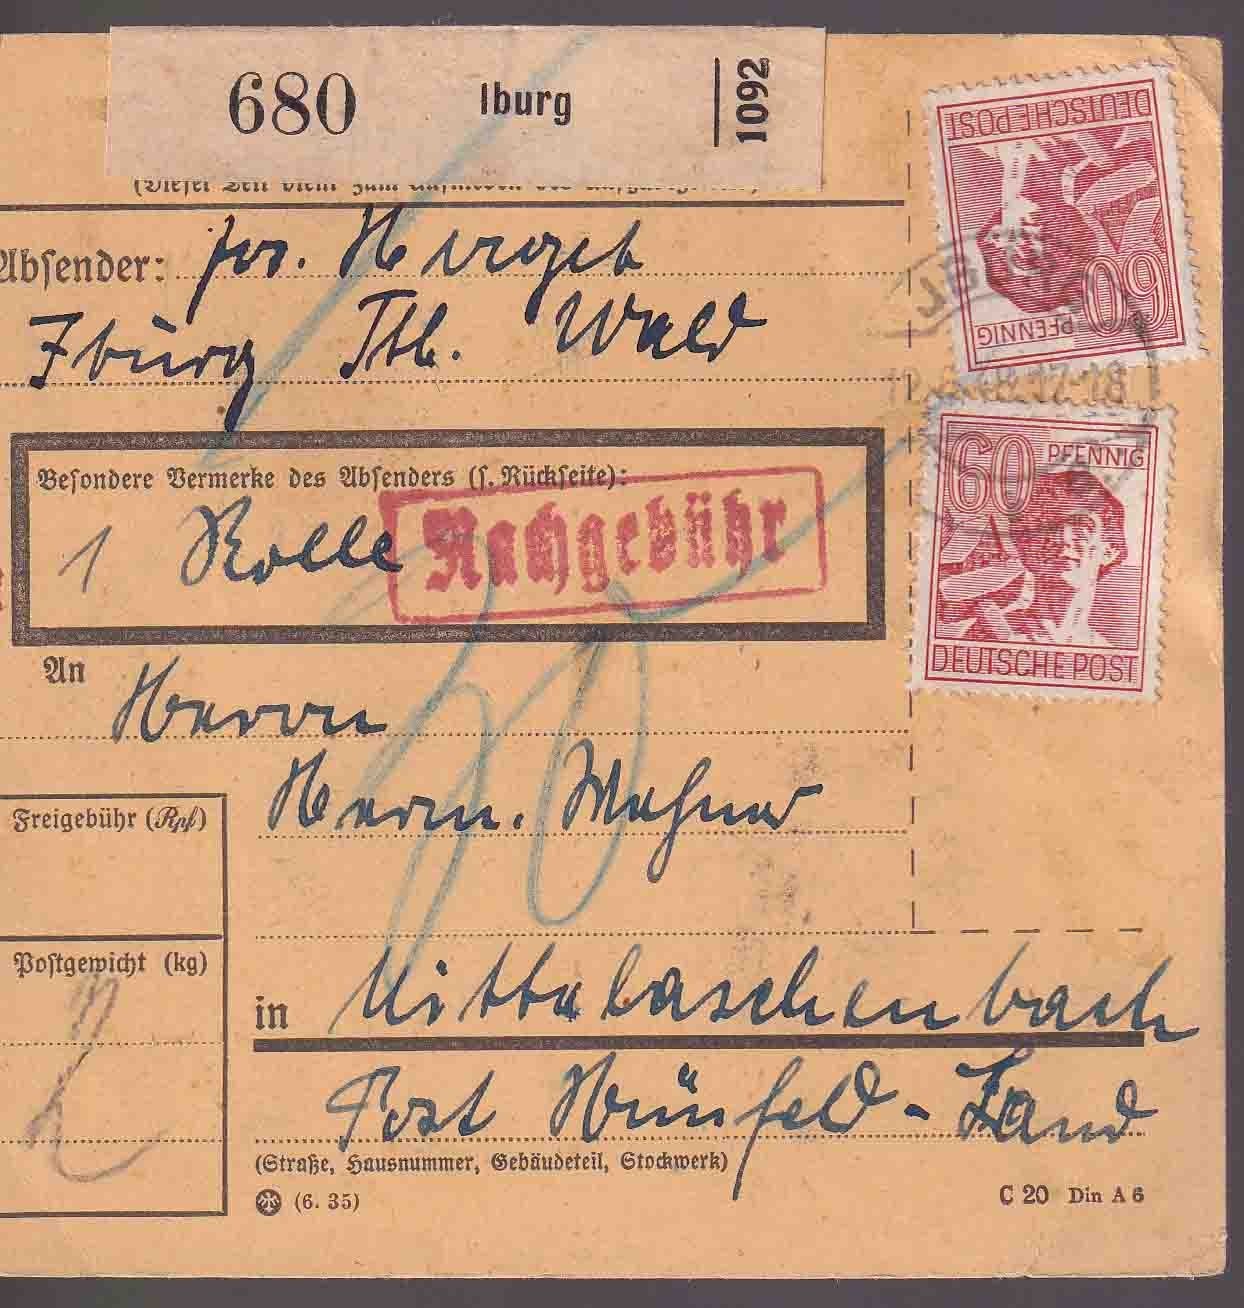 680 Iburg 1092
Absender: Jos. Herget
Iburg Ttb. Wald
Besondere Vermerke des Absenders (s. Rückseite):
1 Rolle
Nachgebühr
An
Herrn
Herm.
Freigebühr (Rpf)
Postgewicht (kg)
2
in Mittelaschenbach
Post Hünfeld-Land
(Straße, Hausnummer, Gebäudeteil, Stockwerk)
(6. 35)
C 20 Din A 6
DEUTSCHE POST
60 PFENNIG
60 PFENNIG
DEUTSCHE POST